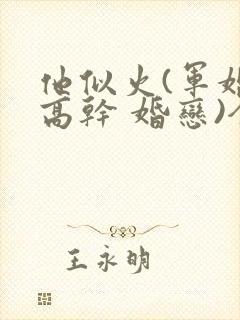 他似火(軍婚
高幹 婚戀)
王永明